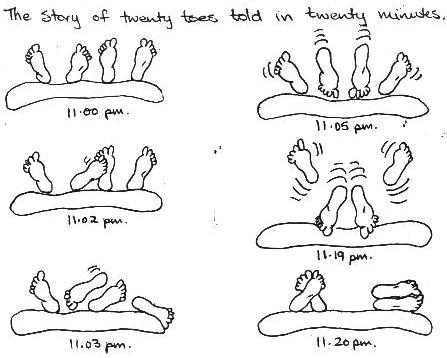 The story of twenty toes told in twenty minutes.
11.00 pm.
11.05 pm.
11.02 pm.
11.19 pm.
11.03 pm.
11.20 pm.